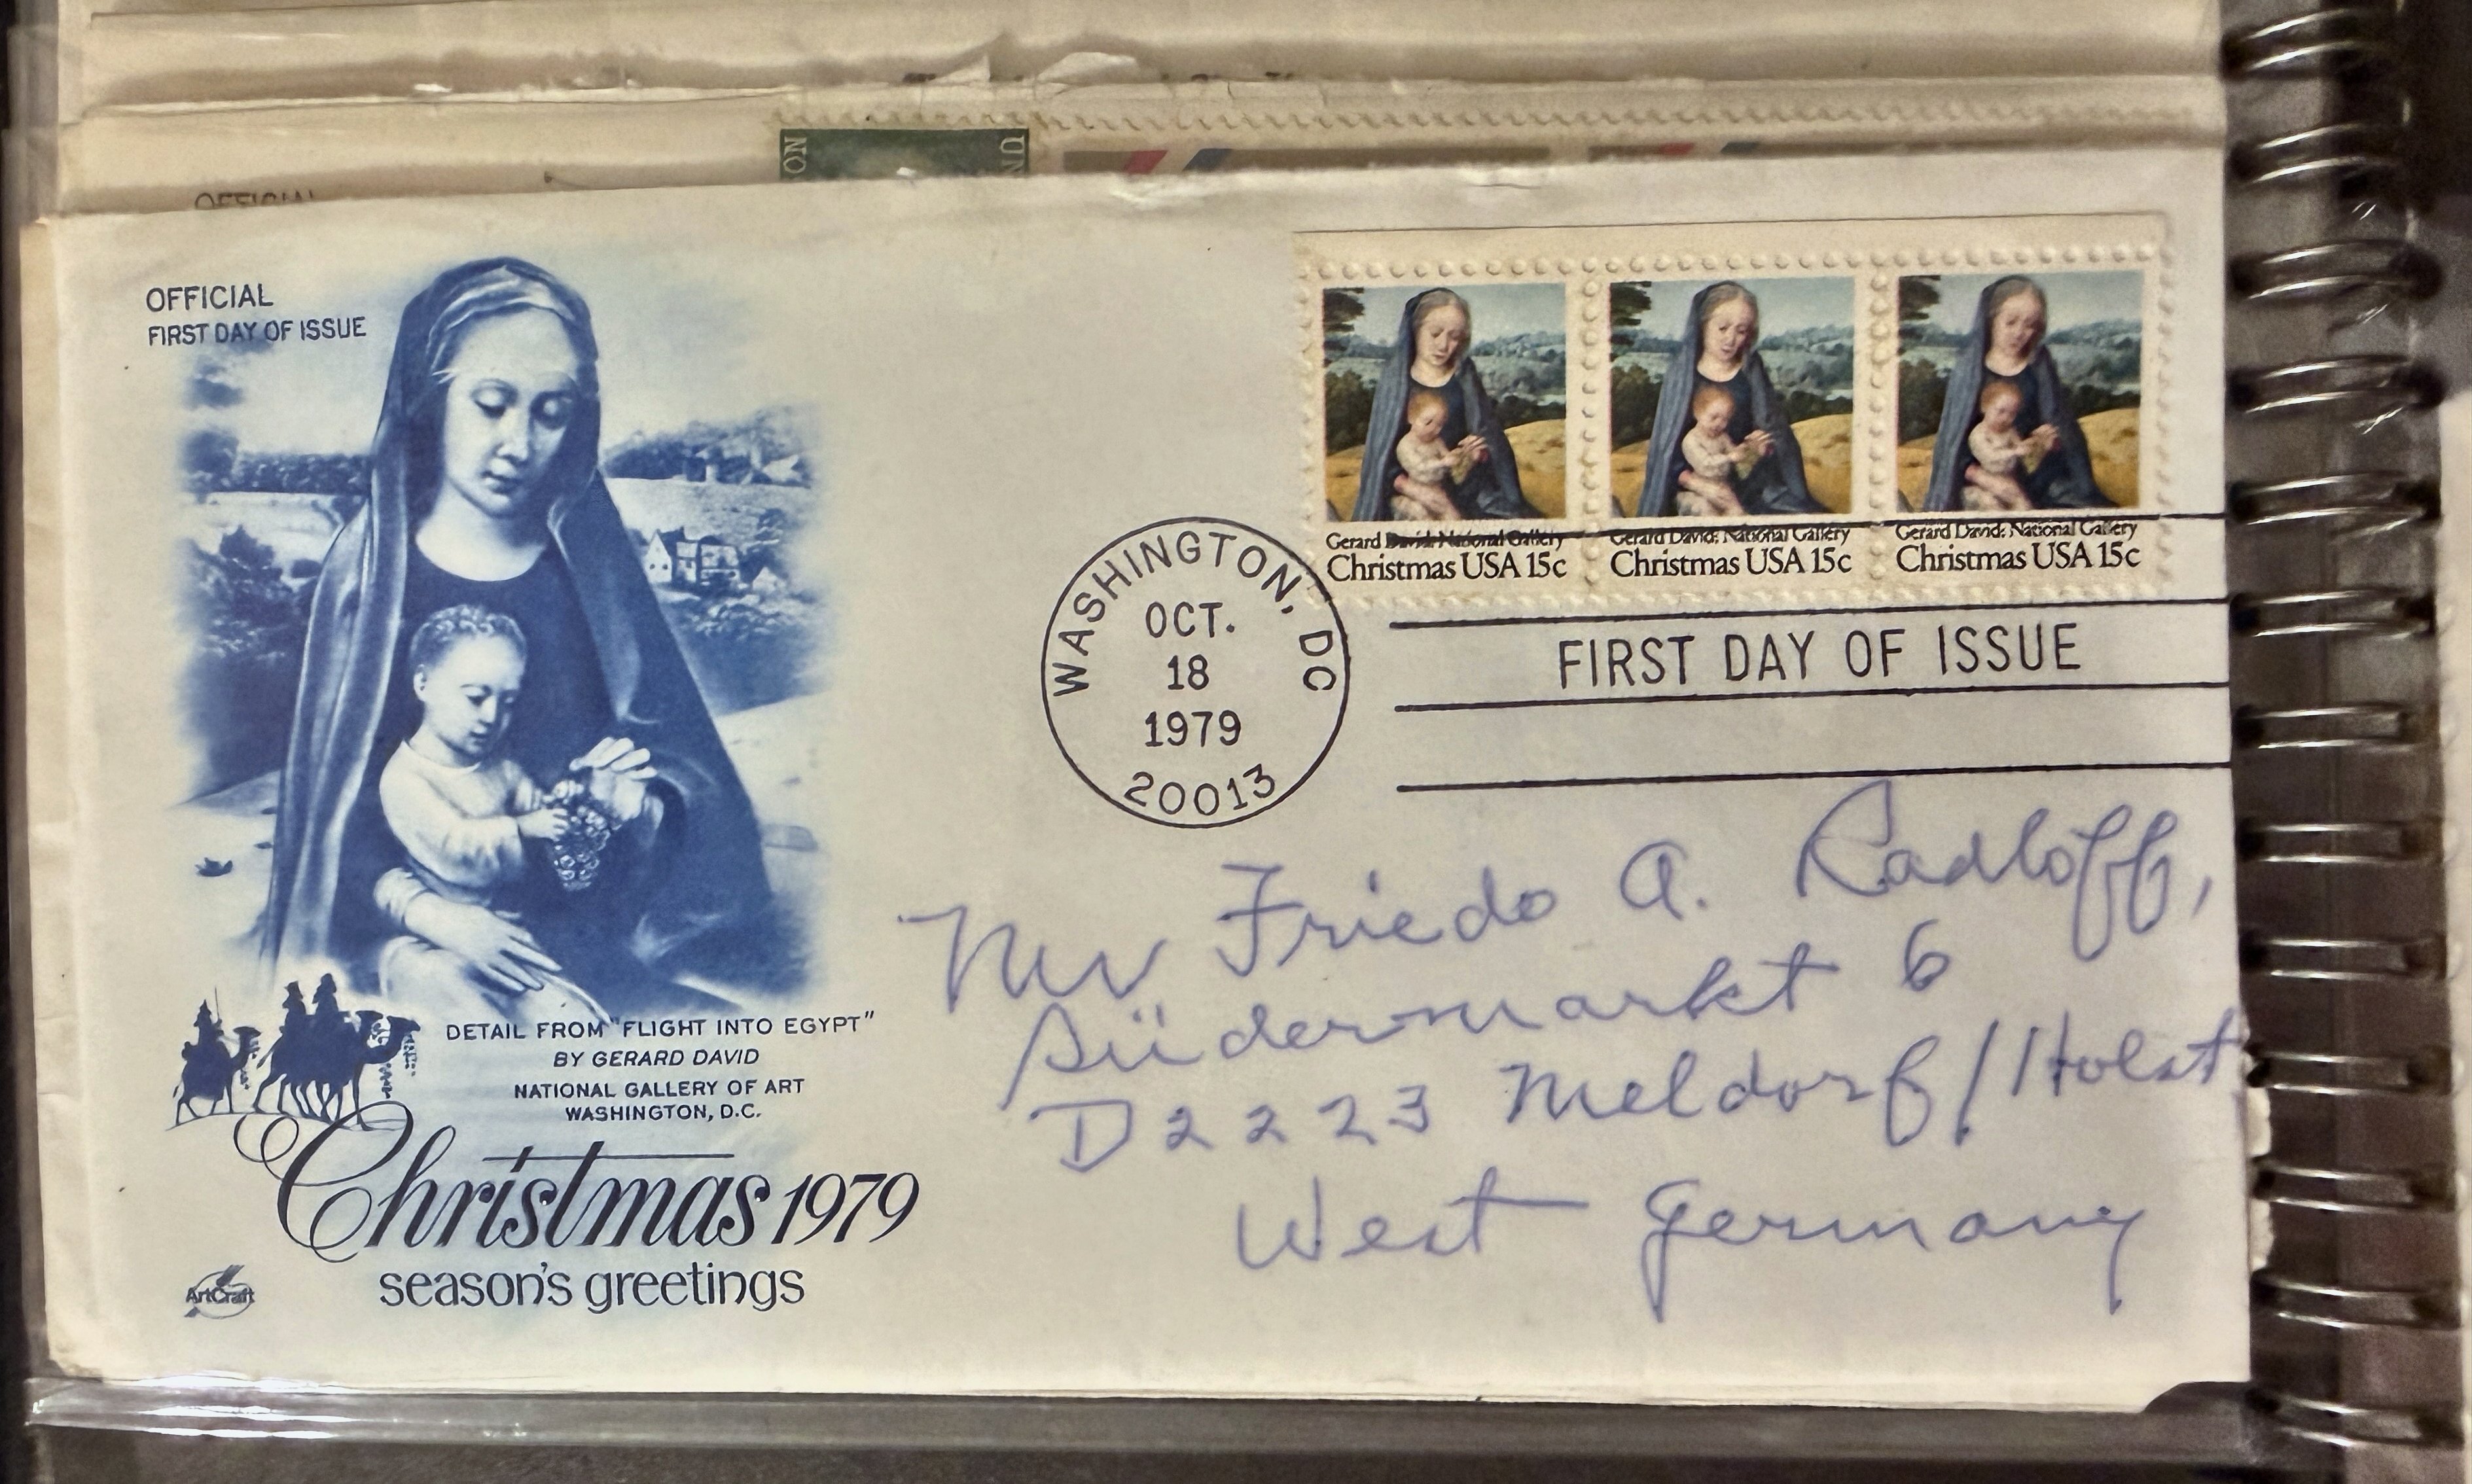 OFFICIAL
OFFICIAL
FIRST DAY OF ISSUE
Gerard David: National Gallery
Christmas USA 15c
Gerard David: National Gallery
Christmas USA 15c
Gerard David: National Gallery
Christmas USA 15c
WASHINGTON, DC
OCT.
18
1979
20013
FIRST DAY OF ISSUE
Mr Friedo A. Radloff,
Südermarkt 6
D2223 Meldorf/Holst
West Germany
DETAIL FROM "FLIGHT INTO EGYPT"
BY GERARD DAVID
NATIONAL GALLERY OF ART
WASHINGTON, D.C.
Christmas 1979
season's greetings
ArtCraft